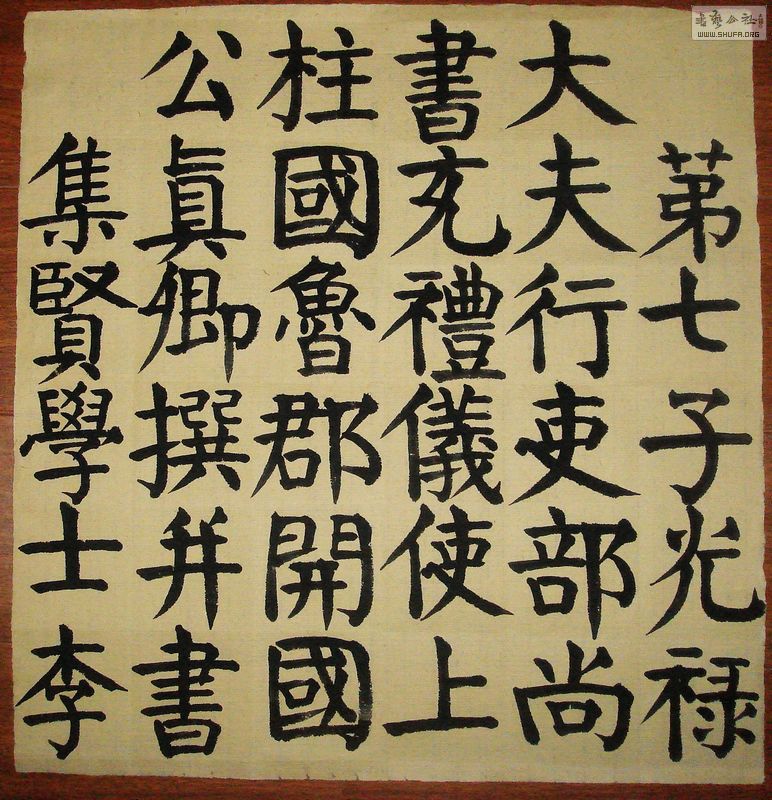 第七子光禄
大夫行吏部尚
書充禮儀使上
柱國魯郡開國
公真卿撰并書
集賢學士李
WWW.SHUFA.ORG